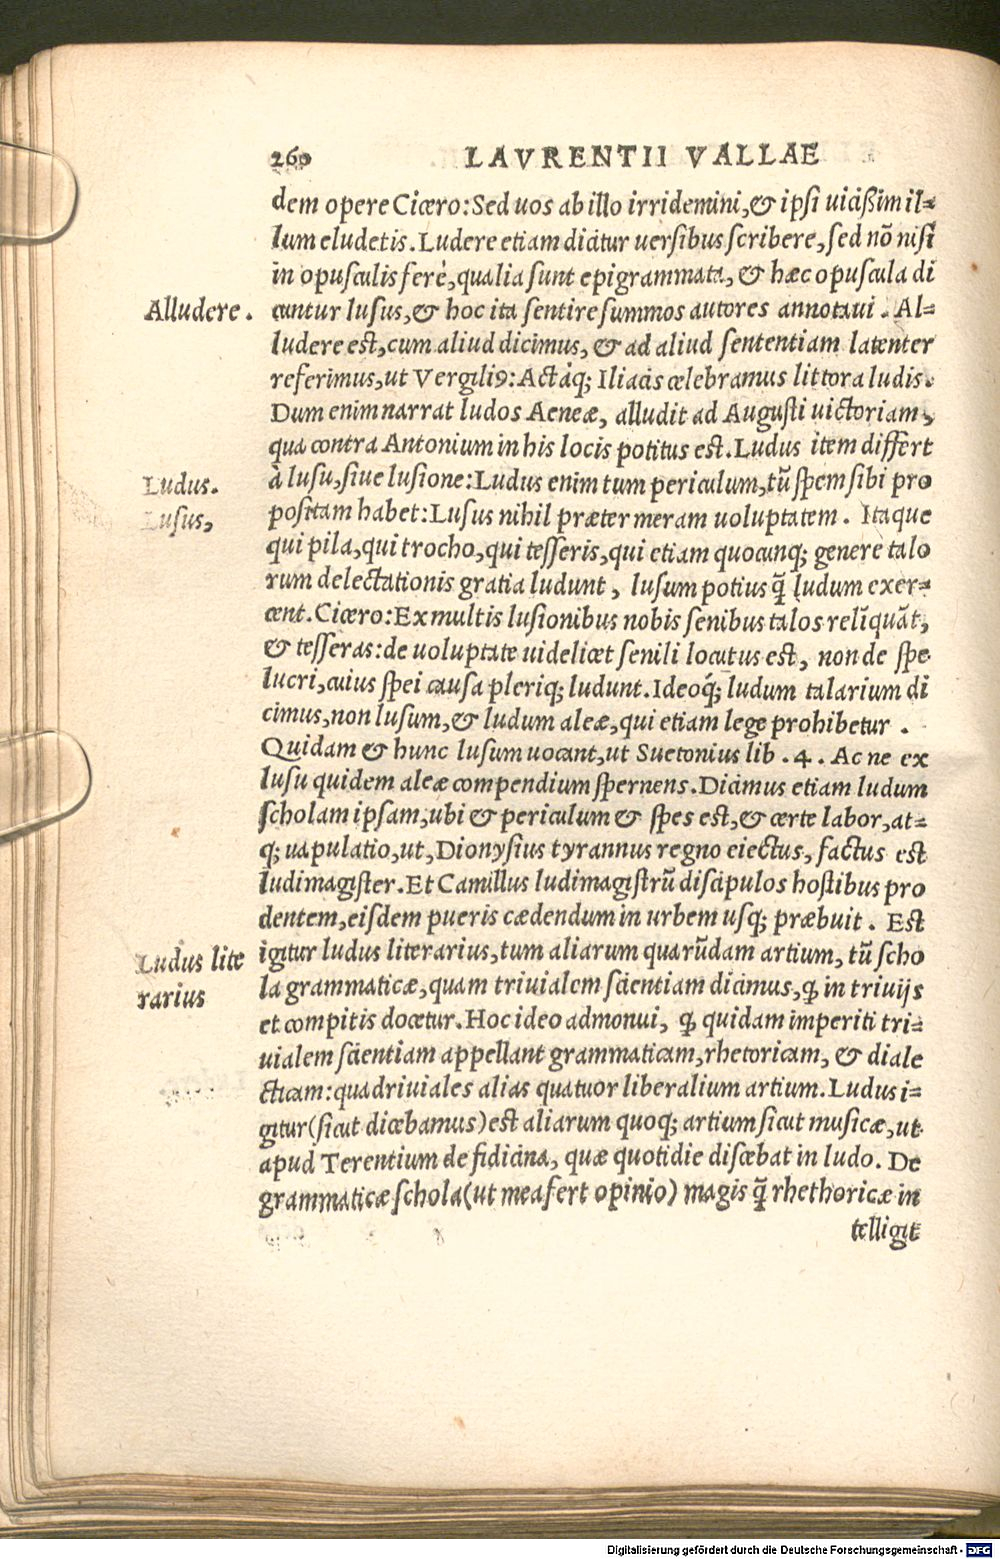 260 LAVRENTII VALLAE
dem opere Cicero: Sed uos ab illo irridemini, & ipsi uicißim il-
lum eludetis. Ludere etiam dicitur uersibus scribere, sed nō nisi
in opusculis ferè, qualia sunt epigrammata, & hæc opuscula di
Alludere. cuntur lusus, & hoc ita sentire summos autores annotaui. Al-
ludere est, cum aliud dicimus, & ad aliud sententiam latenter
referimus, ut Vergiliꝰ: Actàq; Iliacis celebramus littora ludis.
Dum enim narrat ludos Aeneæ, alludit ad Augusti uictoriam,
qua contra Antonium in his locis potitus est. Ludus item differt
Ludus. à lusu, siue lusione: Ludus enim tum periculum, tū spem sibi pro
Lusus, positam habet: Lusus nihil præter meram uoluptatem. Itaque
qui pila, qui trocho, qui tesseris, qui etiam quocunq; genere talo
rum delectationis gratia ludunt, lusum potius q̃ ludum exer-
cent. Cicero: Ex multis lusionibus nobis senibus talos relīquāt,
& tesseras: de uoluptate uidelicet senili locutus est, non de spe
lucri, cuius spei causa pleriq; ludunt. Ideoq́; ludum talarium di
cimus, non lusum, & ludum aleæ, qui etiam lege prohibetur.
Quidam & hunc lusum uocant, ut Suetonius lib. 4. Ac ne ex
lusu quidem aleæ compendium spernens. Dicimus etiam ludum
scholam ipsam, ubi & periculum & spes est, & certe labor, at-
q; uapulatio, ut, Dionysius tyrannus regno eiectus, factus est
ludimagister. Et Camillus ludimagistrū discipulos hostibus pro
dentem, eisdem pueris cædendum in urbem usq; præbuit. Est
Ludus lite igitur ludus literarius, tum aliarum quarūdam artium, tū scho
rarius la grammaticæ, quam triuialem scientiam dicimus, ꝙ in triuijs
et compitis docetur. Hoc ideo admonui, ꝙ quidam imperiti tri-
uialem scientiam appellant grammaticam, rhetoricam, & diale
cticam: quadriuiales alias quatuor liberalium artium. Ludus i-
gitur (sicut dicebamus) est aliarum quoq; artium sicut musicæ, ut
apud Terentium de fidicina, quæ quotidie discebat in ludo. De
grammaticæ schola (ut mea fert opinio) magis q̃ rhethoricæ in
telligit
Digitalisierung gefördert durch die Deutsche Forschungsgemeinschaft - DFG